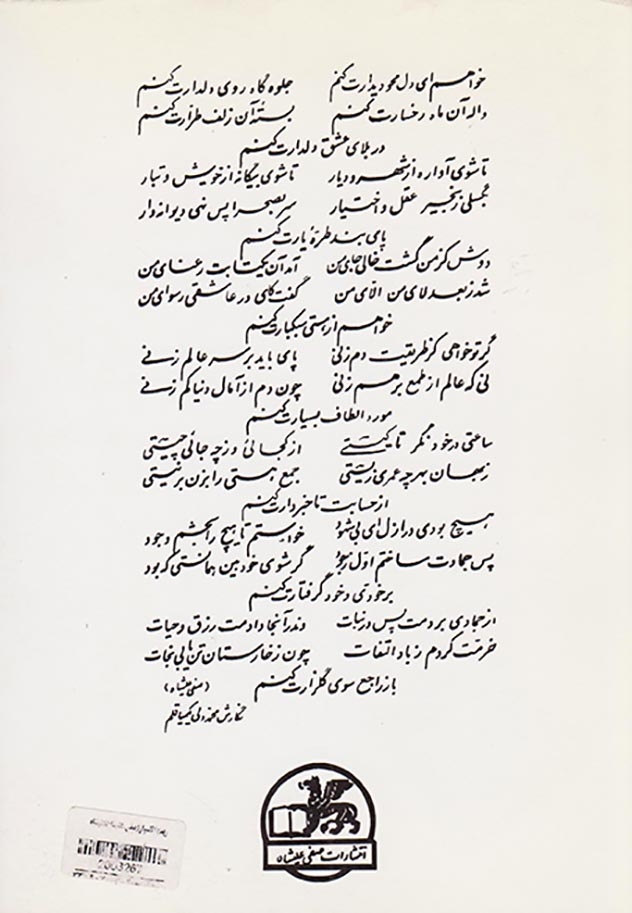 خواهم ای دل محو دیدارت کنم جلوه گاه روی دلدارت کنم
واله آن ماه رخسارت کنم بستهٔ آن زلف طرارت کنم
در بلای عشق دلدارت کنم
تا شوی آواره از شهر و دیار تا شوی بیگانه از خویش و تبار
بگسلی زنجیر عقل و اختیار سر بصحرا پس نهی دیوانه وار
پای بند طرهٔ یارت کنم
دوش کز من گشت خالی جای من آمد آن یکتا بت رعنای من
شد ز بعد لای من الای من گفت کای در عاشقی رسوای من
خواهم از هستی سبکبارت کنم
گر تو خواهی کز طریقیت دم زنی پای باید بر سر عالم زنی
نی که عالم از طمع بر هم زنی چون دم از آمال دنیا کم زنی
مورد الطاف بسیارت کنم
ساعتی در خود نگر تا کیستی از کجائی و ز چه جائی چیستی
در جهان بهر چه عمری زیستی جمع هستی را بزن بر نیستی
از حسابت تا خبردارت کنم
هیچ بودی در ازل ای بی شهود خواستم تا هیچ را بخشم وجود
پس جمادت ساختم اول ز جود گر شوی خود بین همانستی که بود
بر خودی خود گرفتارت کنم
از جمادی بردمت پس در نبات وندر آنجا دادمت رزق و حیات
خرمت کردم ز باد التفات چون ز خارستان تن یابی نجات
باز راجع سوی گلزارت کنم (صفی علیشاه)
نگارش محمد ولی کیمیا قلم
انتشارات صفی علیشاه
2003267